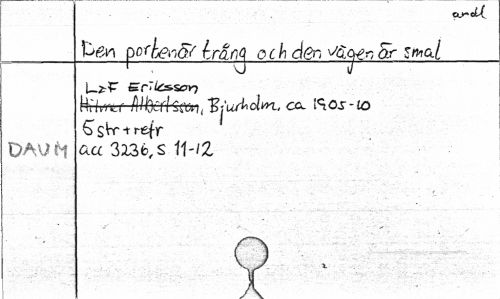 andl
Den porten är trång och den vägen är smal
LzF Eriksson
Hilmer Albertsson, Bjurholm, ca 1905-10
5 str + refr
DAUM acc 3236, s 11-12